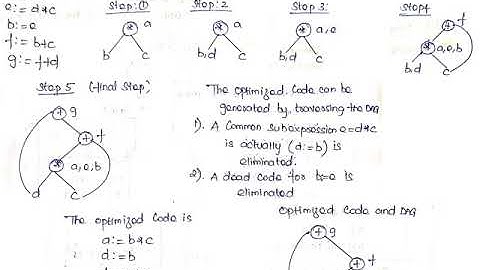 e:= d*c
b:= e
f:= b+c
g:= f+d
Step:①
* a
b c
Step:2
* a
b,d c
Step 3:
* a,e
b,d c
Step4
+ f
* a,e,b
b,d c
Step 5 (final step)
+ g
+ f
* a,e,b
d c
The optimized code can be
generated by traversing the DAG
1). A Common subexpression e=d*c
is actually (d:=b) is
eliminated.
2). A dead code for b=e is
eliminated
The optimized code is
a:= b*c
d:= b
optimized code and DAG
+ g
+ f